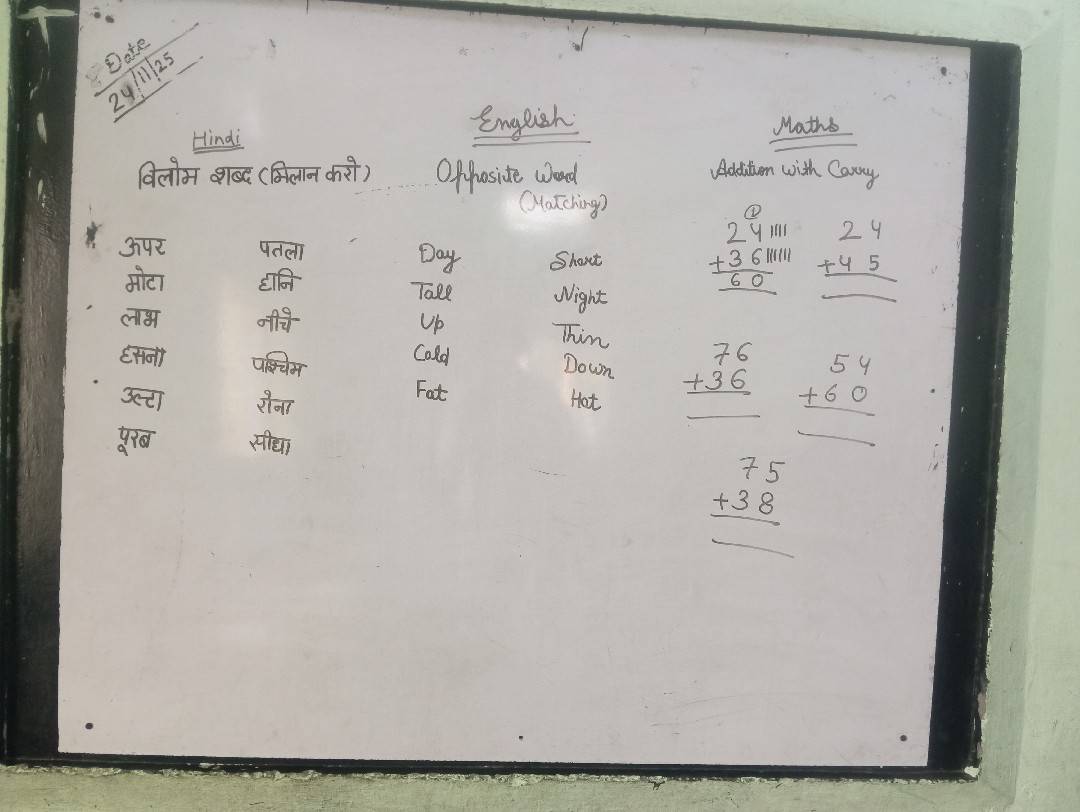 Date
24/11/25
Hindi
विलोम शब्द (मिलान करो)
ऊपर पतला
मोटा हानि
लाभ नीचे
हसना पश्चिम
उल्टा रोना
पूरब सीधा
English
Opposite Word
(Matching)
Day Short
Tall Night
Up Thin
Cold Down
Fat Hot
Maths
Addition with Carry
1
24 ||||
+36 ||||||
60
24
+45
76
+36
54
+60
75
+38